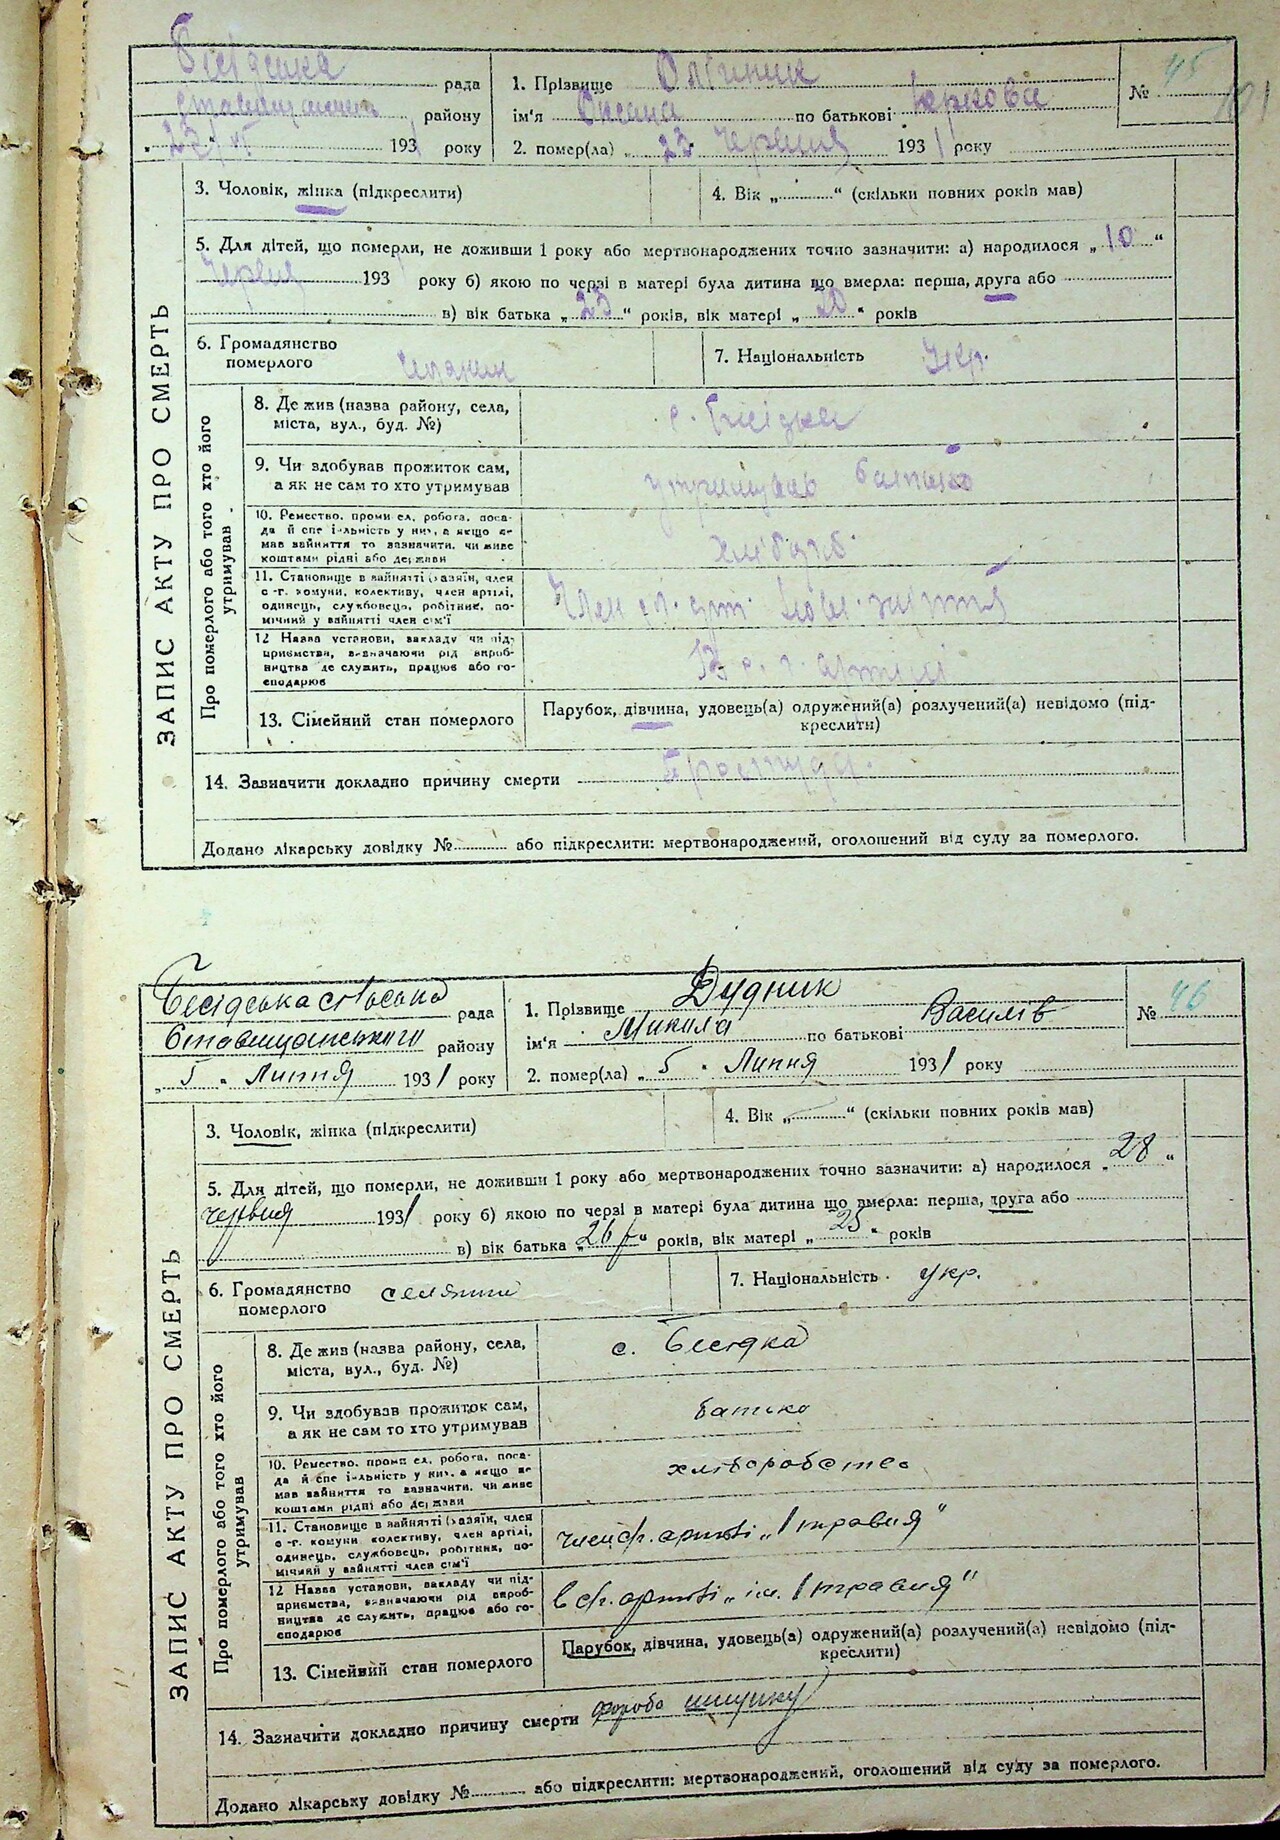 Бесідська рада
Ставищанськ. району
„ 23/VI 1931 року
1. Прізвище Олійник
ім'я Оксана по батькові Юркова
2. помер(ла) „ 23 Червня 1931 року
№ 45
101
ЗАПИС АКТУ ПРО СМЕРТЬ
3. Чоловік, жінка (підкреслити)
4. Вік „ “ (скільки повних років мав)
5. Для дітей, що померли, не доживши 1 року або мертвонароджених точно зазначити: а) народилося „ 10 “
Червня 193 року б) якою по черзі в матері була дитина що вмерла: перша, друга або
в) вік батька „ 23 “ років, вік матері „ 20 “ років
6. Громадянство
померлого
7. Національність Укр.
Про померлого або того хто його
утримував
8. Де жив (назва району, села,
міста, вул., буд. №)
с. Бесідка
9. Чи здобував прожиток сам,
а як не сам то хто утримував
утримував батько
10. Ремество, промисел, робота, поса-
да й спеціальність у них, а якщо не
мав зайняття то зазначити, чи живе
коштами рідні або держави
хлібороб.
11. Становище в зайнятті (хазяїн, член
с.-г. комуни, колективу, член артілі,
одинець, службовець, робітник, по-
мічний у зайнятті член сім'ї
Член с.г. арт. Нове життя
12 Назва установи, закладу чи під-
приємства, визначаючи рід вироб-
ництва де служить, працює або го-
сподарює
В с. г. артілі
13. Сімейний стан померлого
Парубок, дівчина, удовець(а) одружений(а) розлучений(а) невідомо (під-
креслити)
14. Зазначити докладно причину смерти Простуда.
Додано лікарську довідку № або підкреслити: мертвонароджений, оголошений від суду за померлого.
Бесідська сільська рада
Ставищанського району
„ 5 “ Липня 1931 року
1. Прізвище Дудник
ім'я Микола по батькові Василів
2. помер(ла) „ 5 “ Липня 1931 року
№ 46
ЗАПИС АКТУ ПРО СМЕРТЬ
3. Чоловік, жінка (підкреслити)
4. Вік „ “ (скільки повних років мав)
5. Для дітей, що померли, не доживши 1 року або мертвонароджених точно зазначити: а) народилося „ 28 “
червня 1931 року б) якою по черзі в матері була дитина що вмерла: перша, друга або
в) вік батька „ 26 р “ років, вік матері „ 25 “ років
6. Громадянство
померлого
селянин
7. Національність укр.
Про померлого або того хто його
утримував
8. Де жив (назва району, села,
міста, вул., буд. №)
с. Бесідка
9. Чи здобував прожиток сам,
а як не сам то хто утримував
батько
10. Ремество, промисел, робота, поса-
да й спеціальність у них, а якщо не
мав зайняття то зазначити, чи живе
коштами рідні або держави
хліборобство
11. Становище в зайнятті (хазяїн, член
с.-г. комуни, колективу, член артілі,
одинець, службовець, робітник, по-
мічний у зайнятті член сім'ї
член с.г. артілі „1 травня“
12 Назва установи, закладу чи під-
приємства, визначаючи рід вироб-
ництва де служить, працює або го-
сподарює
в с.г. артілі „ім. 1 травня“
13. Сімейний стан померлого
Парубок, дівчина, удовець(а) одружений(а) розлучений(а) невідомо (під-
креслити)
14. Зазначити докладно причину смерти хороба шлунку
Додано лікарську довідку № або підкреслити: мертвонароджений, оголошений від суду за померлого.